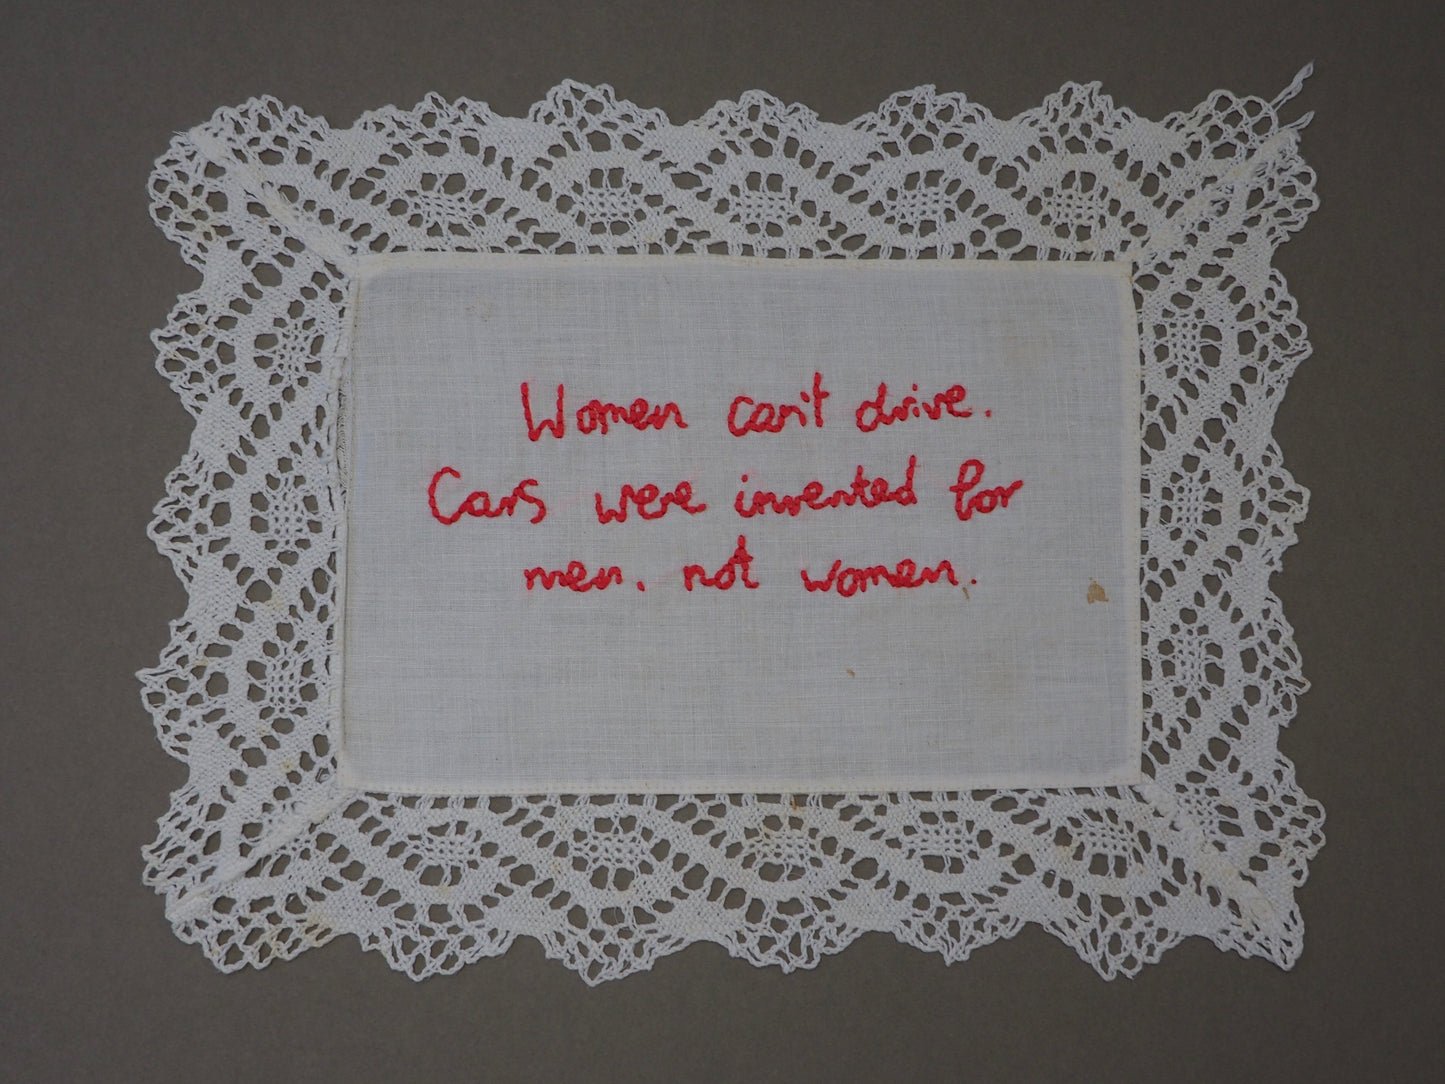 Women can't drive.
Cars were invented for
men. not women.